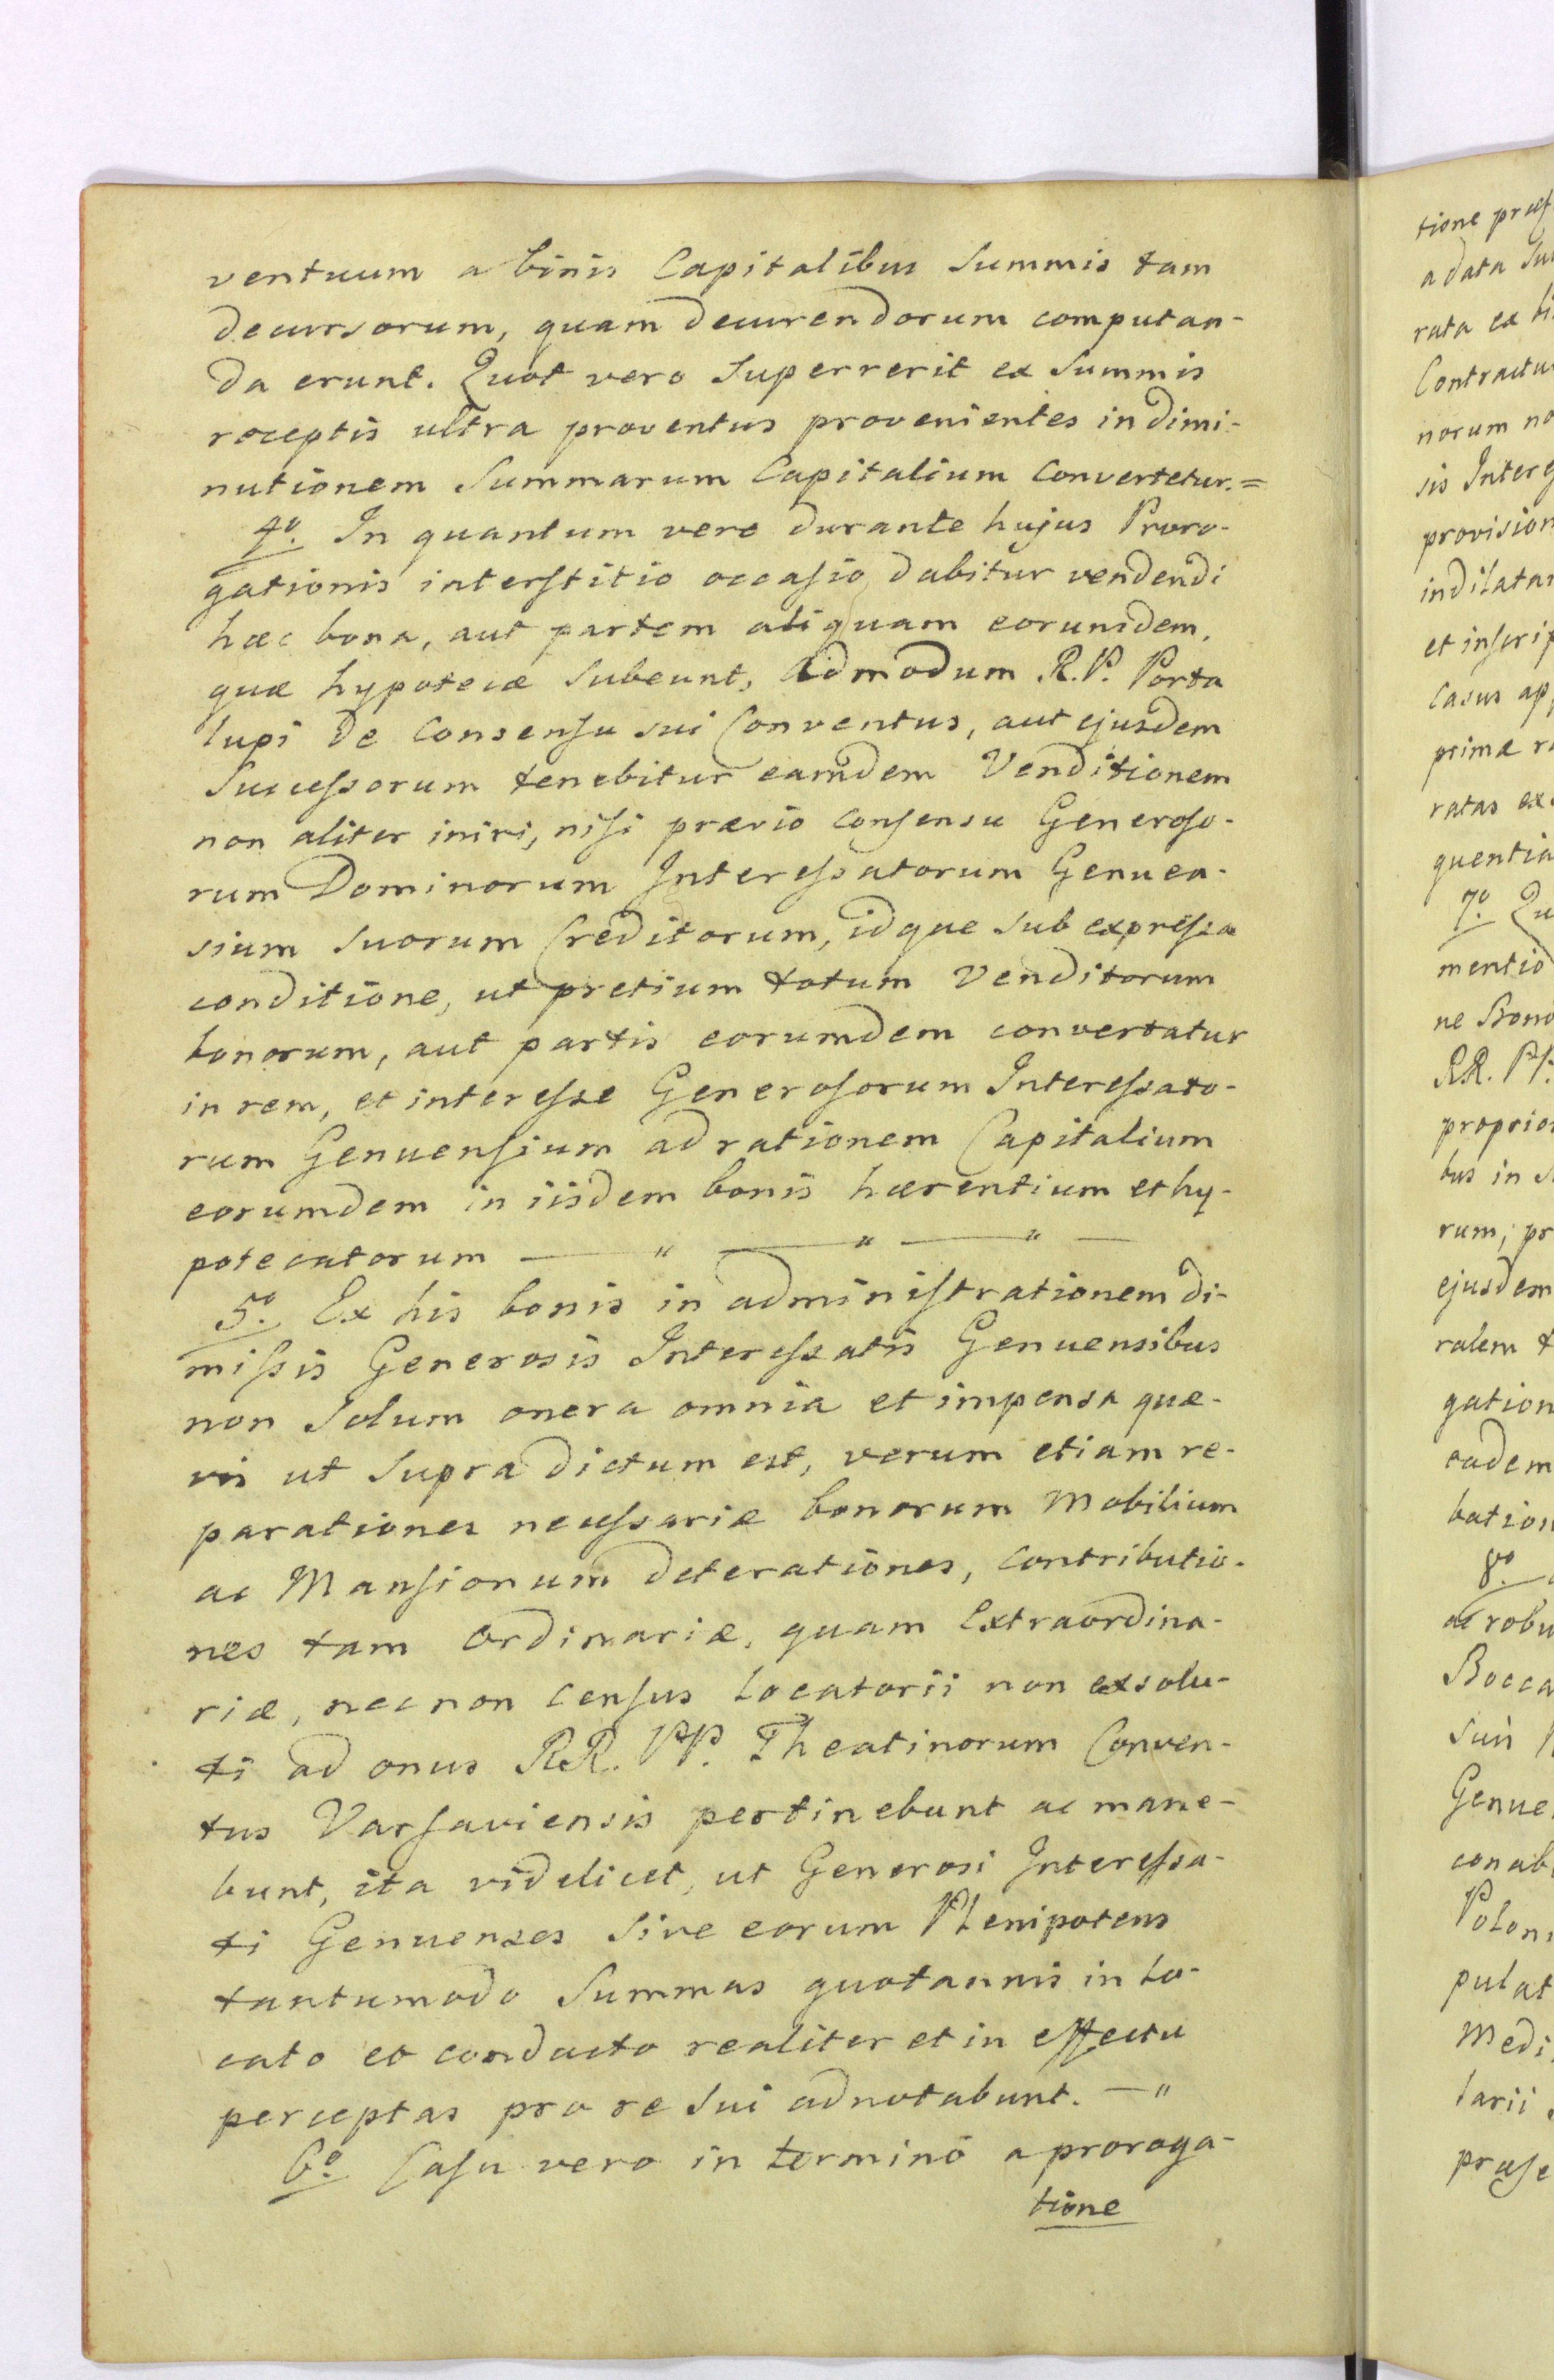 ventuum a binis Capitalibus Summis tam
decursorum, quam decurendorum computan-
da erunt. Quot vero Superrerit ex Summis
receptis ultra proventus provenientes in dimi-
nutionem Summarum Capitalium Convertetur.=
4o. In quantum vero durante hujus Proro-
gationis interstitio occasio dabitur vendendi
hæc bona, aut partem aliquam eorumdem,
quæ hypotecæ Subeunt, Admodum R. P. Porta
lupi de Consensu sui Conventus, aut ejusdem
Successorum tenebitur eamdem Venditionem
non aliter iniri, nisi prævio Consensu Generoso-
rum Dominorum Interessatorum Genuen-
sium suorum Creditorum, idque sub expressa
conditione, ut pretium totum Venditorum
bonorum, aut partis eorumdem convertatur
in rem, et interesse Generosorum Interessato-
rum Genuensium ad rationem Capitalium
eorumdem in iisdem bonis hærentium et hy-
potecatorum — " — " — " —
5o. Ex his bonis in administrationem di-
missis Generosis Interessatis Genuensibus
non Solum onera omnia et impensa quæ-
vis ut Supra dictum est, verum etiam re-
parationes necessariæ bonorum Mobilium
ac Mansionum deterationes, Contributio-
nes tam Ordinariæ, quam Extraordina-
riæ, nec non Census Locatorii non exsolu-
ti ad onus RR. PP. Theatinorum Conven-
tus Varsaviensis pertinebunt ac mane-
bunt, ita videlicet, ut Generosi Interessa-
ti Genuenses Sive eorum Plenipotens
tantumodo Summas quotannis in Lo-
cato et conducto realiter et in effectu
perceptas pro re Sui adnotabunt. — "
6o. Casu vero in termino a proroga-
tione
tione
a data
rata ex
norum
sis
indilatar
et
Casus
primæ
ratas
7o.
mentio
ne
RR.
bus in
rum,
ejusdem
ralem
eadem
8o.
Bocca
suis
Genue
Polon
Medi